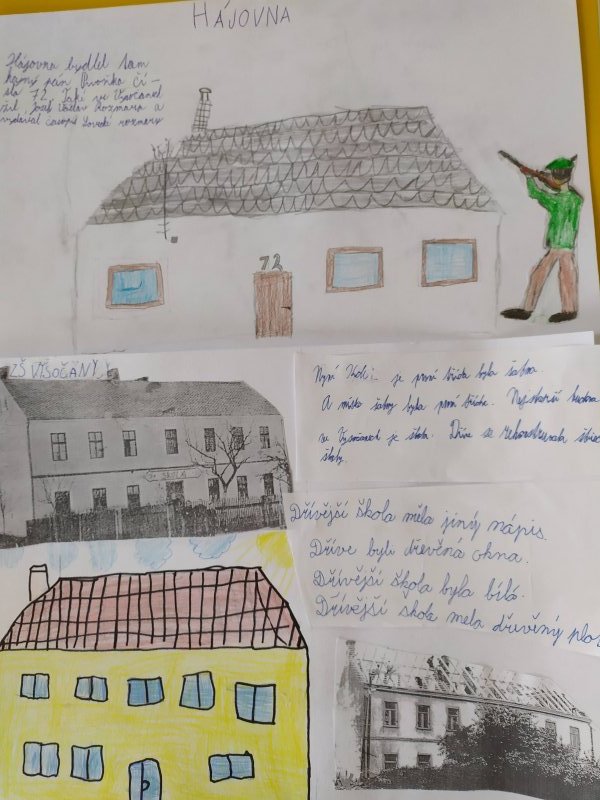 HÁJOVNA
Hájovna bydlel tam
pán Pivoňka čí-
slo 72. Také ve Vysočanech
žil Josef Václav Rozmara a
vydával časopis Lovecké rozmary
72
ZŠ VISOČANY
ŠKOLA
Nyní je první třída byla šatna.
A místo šatny byla první třída. Nejstarší budova
ve Vysočanech je škola. Dříve se rekonstruovala
školy.
Dřívější škola měla jiný nápis.
Dříve byli dřevěná okna.
Dřívější škola byla bílá.
Dřívější skola mela dřevěný plot